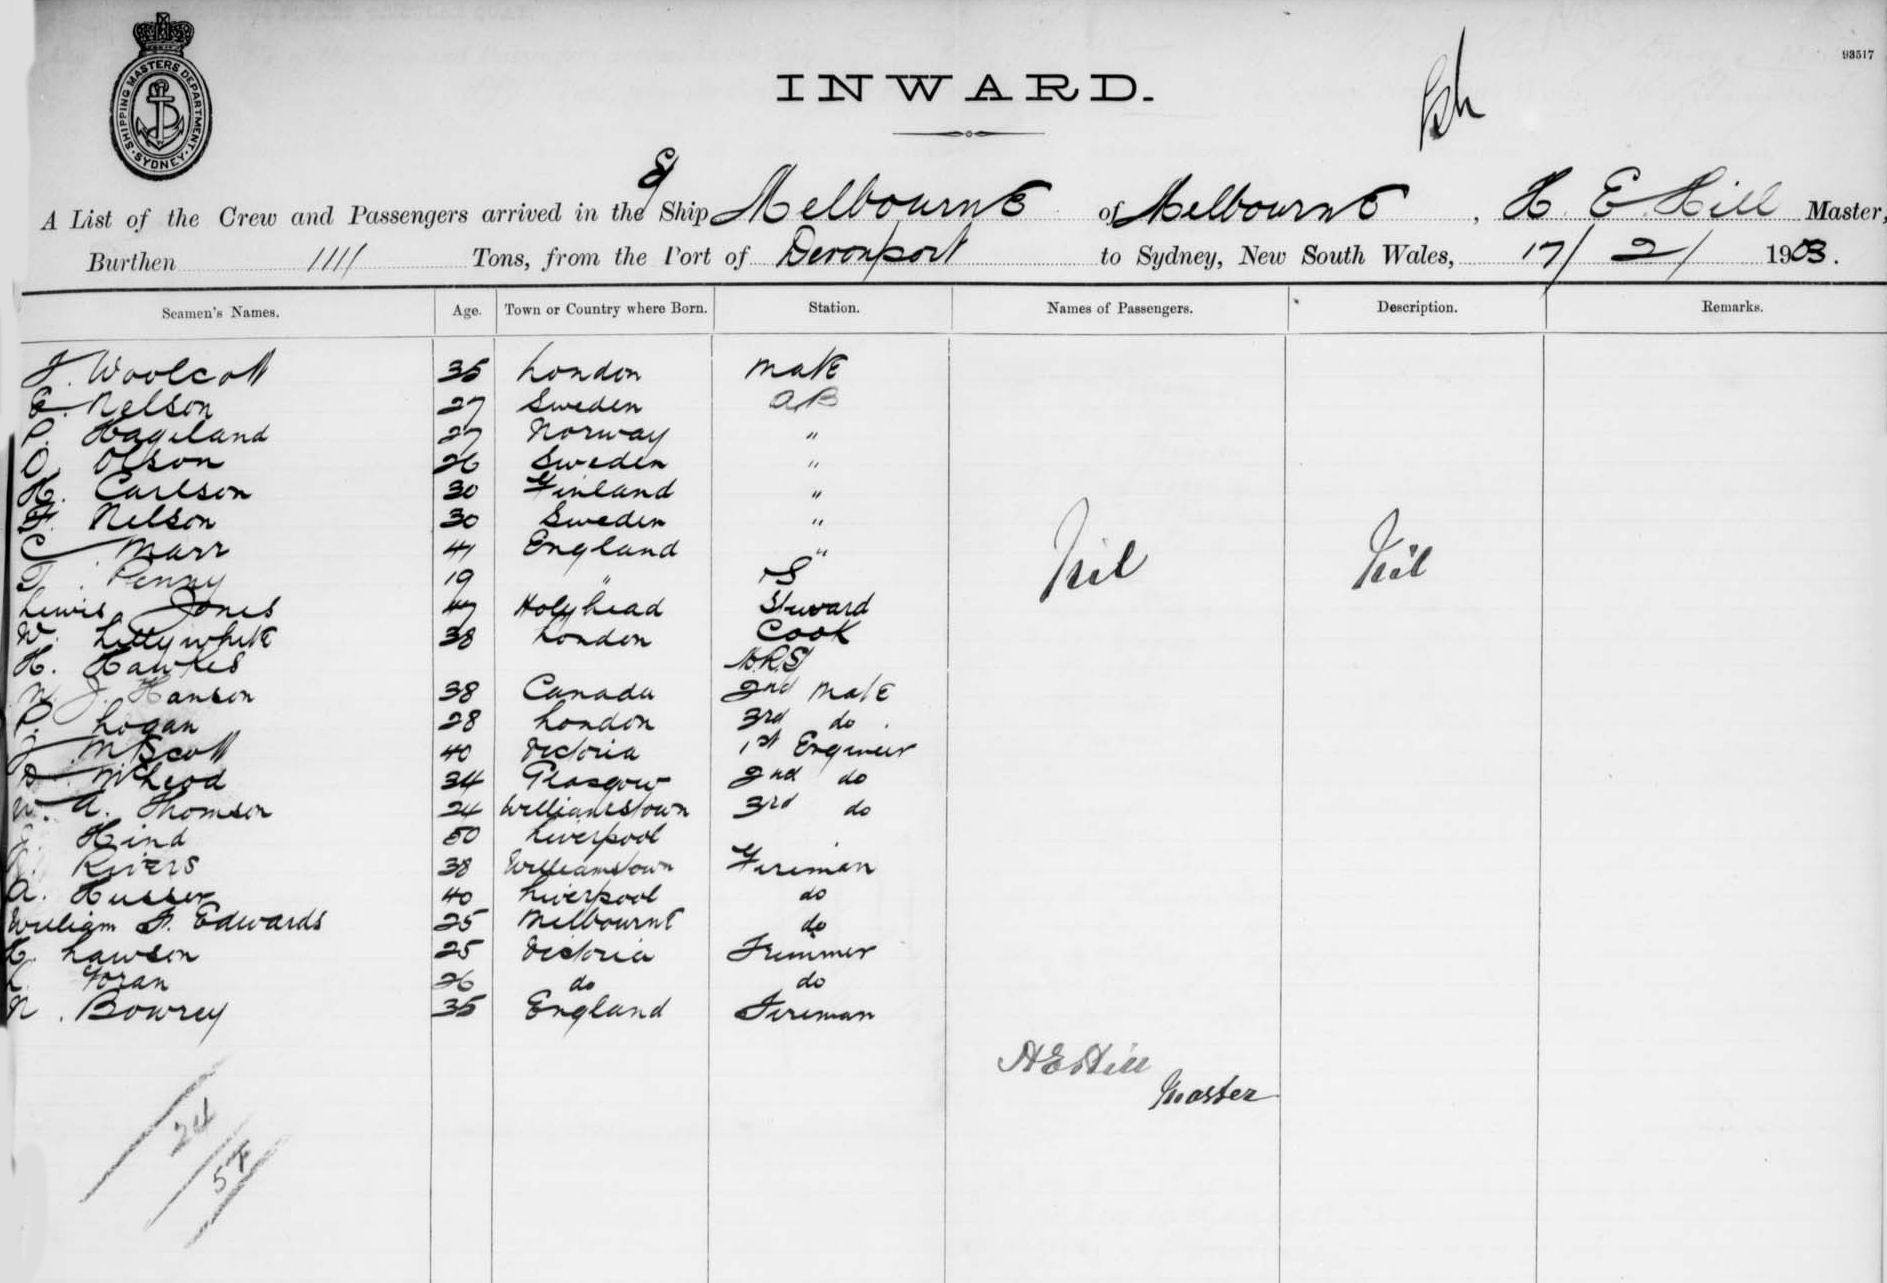 93517
SHIPPING MASTERS DEPARTMENT
SYDNEY
INWARD.
A List of the Crew and Passengers arrived in the Ship Melbourne of Melbourne, H E Hill Master,
Burthen 1111 Tons, from the Port of Devonport to Sydney, New South Wales, 17/2/1903.
Seamen's Names. Age. Town or Country where Born. Station. Names of Passengers. Description. Remarks.
J. Woolcott 35 London Mate
E. Nelson 27 Sweden AB
P. Hageland 27 Norway "
O. Olson 26 Sweden "
H. Carlson 30 Finland "
F. Nelson 30 Sweden "
C Marr 41 England "
T. Penny 19 " OS
Nil Nil
Lewis Jones 47 Holyhead Steward
W. Lillywhite 38 London Cook
H. Hawkes
W J. Hanson 38 Canada 2nd Mate
P. Logan 28 London 3rd do.
J. M Scott 40 Victoria 1st Engineer
D. McLeod 34 Glasgow 2nd do
W. A. Thomson 24 Williamstown 3rd do
Hind 50 Liverpool
Rivers 38 Williamstown Fireman
A. 40 Liverpool do
William F. Edwards 25 Melbourne do
H. Lawson 25 Victoria Trimmer
Foran 26 do do
N. Bowrey 35 England Fireman
H E Hill
Master
24
54